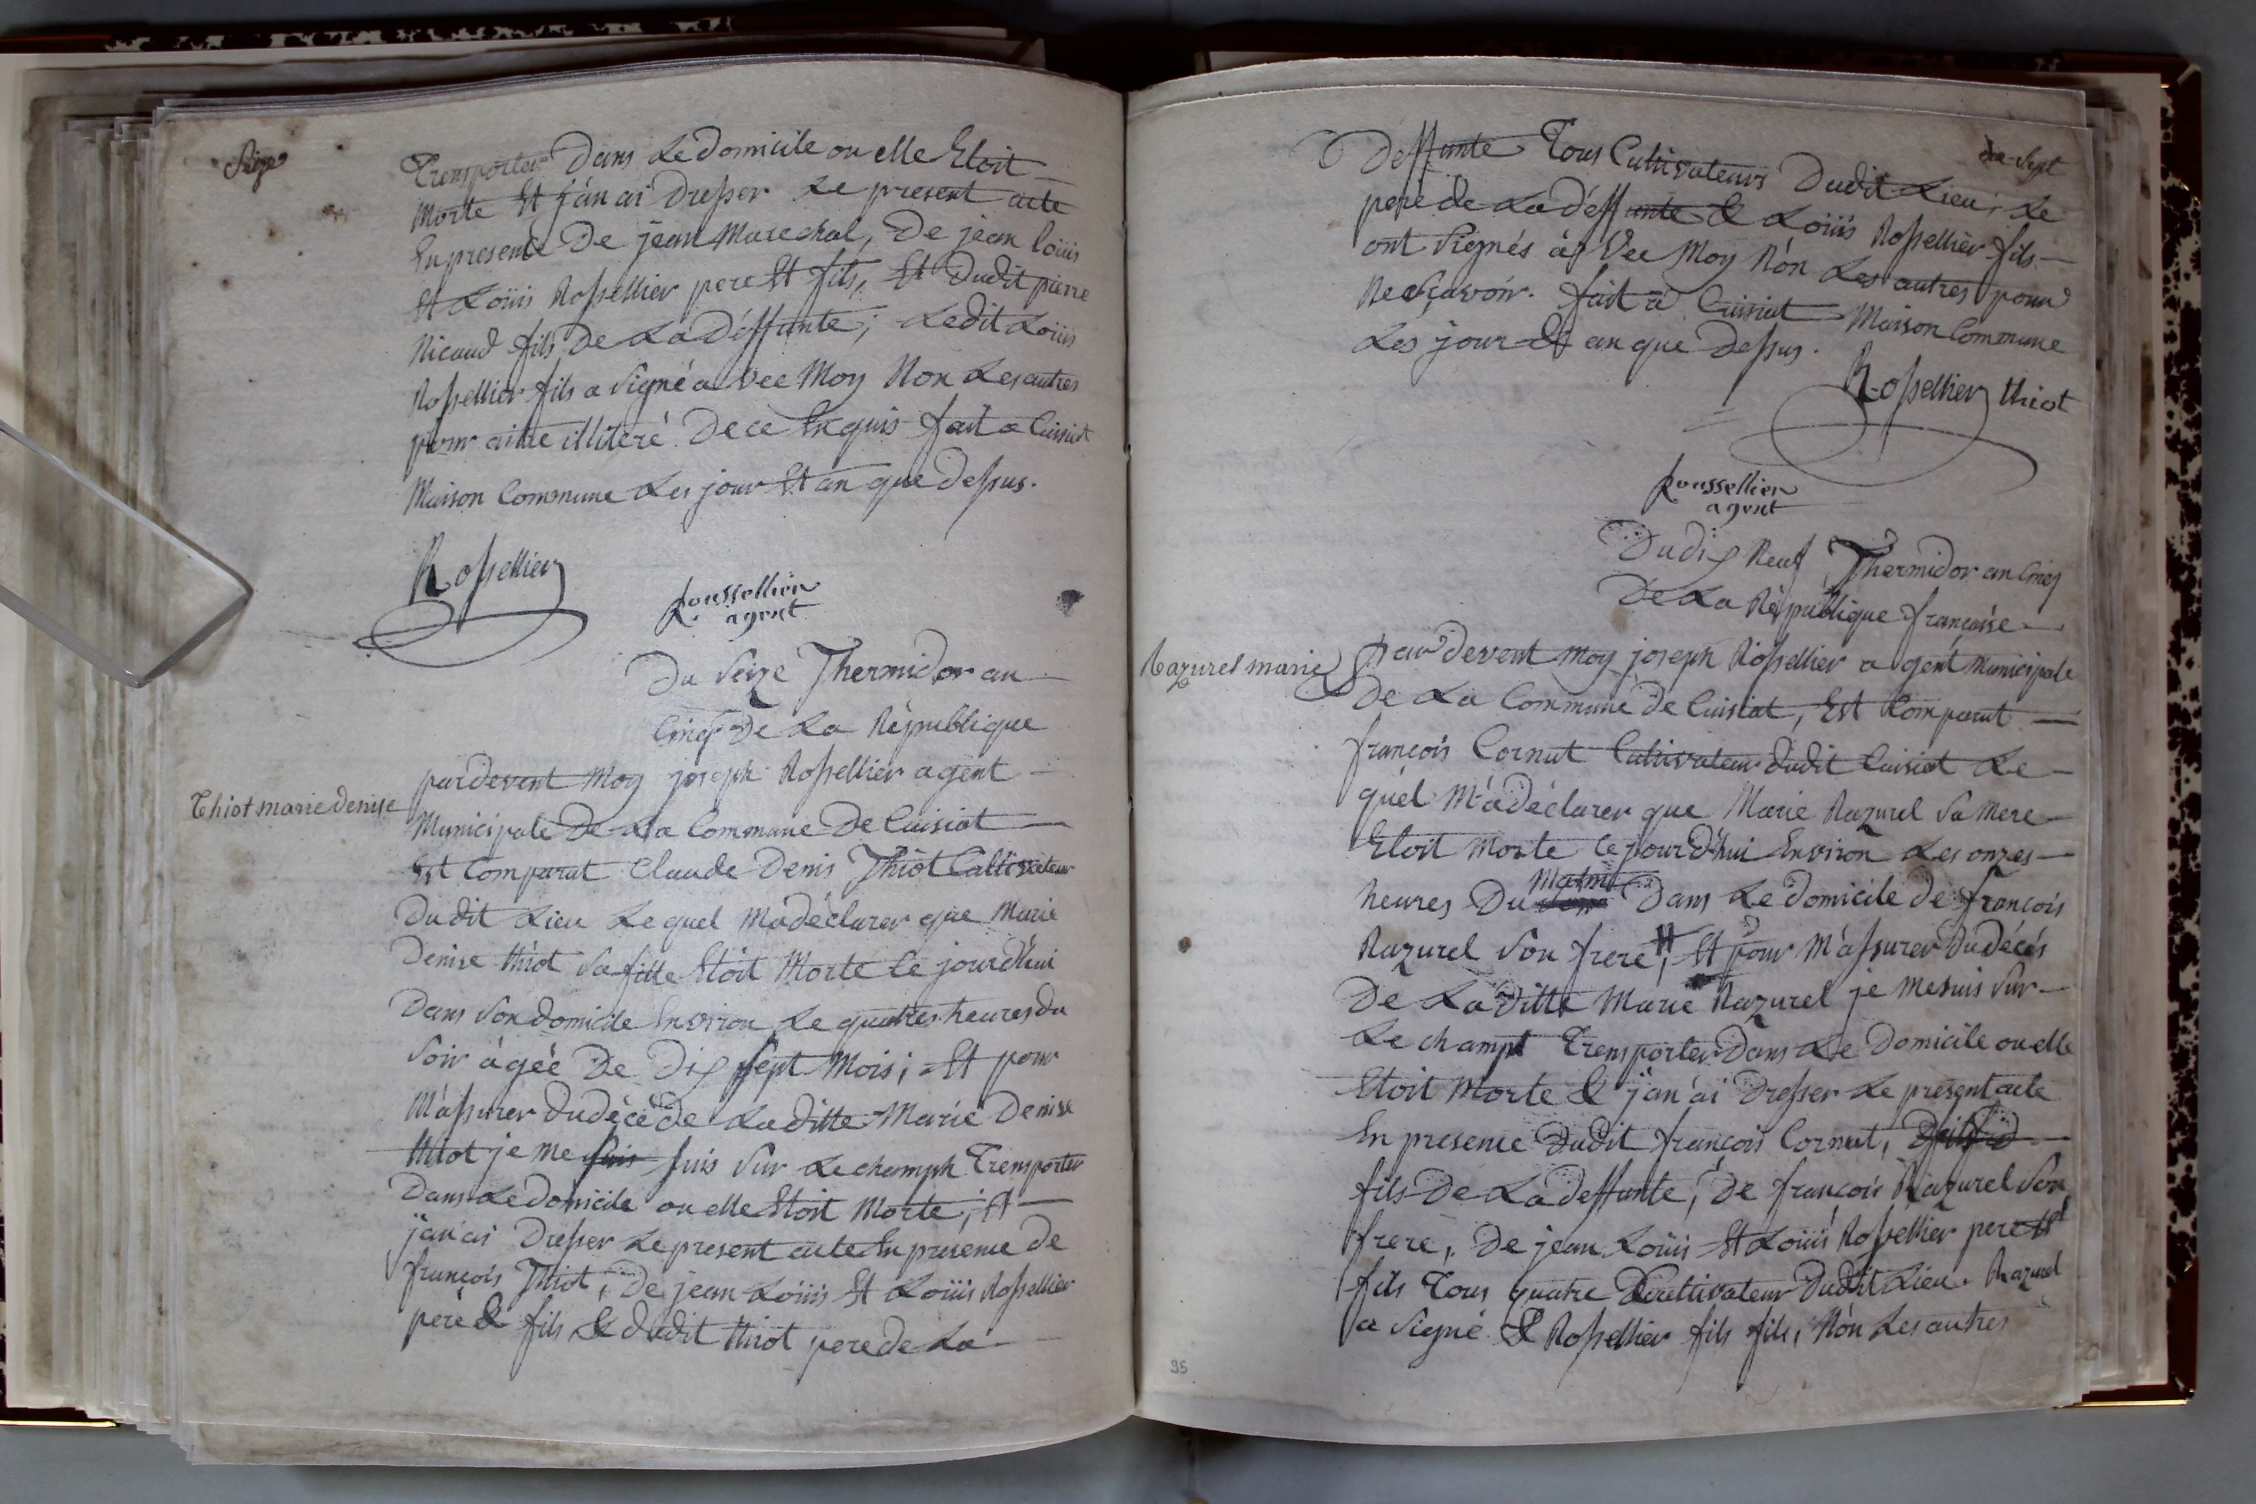 Seize
Trensporter Dans Le Domicile ou elle Etoit
Morte Et j'an ai Dresser Le present acte
En presence De jean Marechal, De jean loüis
Et Loüis Rossellier pere Et fils, Et Dudit pierre
Nicaud fils De La Déffunte; Ledit Loüis
Rossellier fils a signé a vec Moy Non Les autres
pour aitre illiteré De ce Enquis fait a Cuisiat
Maison Commune Les jour Et an que Dessus.
Rossellier
Roussellier
agent
Du Seize Thermidor an
Cinq De La République
Thiot marie denise
pardevent Moy joseph Rossellier agent
Municipale De La Commune De Cuisiat
Est Comparut Claude Denis Thiot Cultivateur
Dudit Lieu Le quel M'adéclarer que Marie
Denise thiot Sa fille Etoit Morte Ce jourd'hui
Dans Son domicile Environ Le quatres heures du
Soir àgéè De Dix Sept Mois; Et pour
M'assurer Dudécé de Laditte Marie Denise
thiot je me suis suis Sur Le champh Trensporter
Dans Le Domicile ou elle Etoit Morte; Et
j'an ai Dresser Le present acte En présence de
françois Thiot, De jean Loüis Et Loüis Rossellier
père & fils & dudit thiot pere de La
dix-Sept
Deffunte Tous Cultivateurs Dudit Lieu; Le
pere de La déffunte & Loüis Rossellier fils
ont Signés à Vec Moy Nón Les autres pour
Ne Sçavoir. fait a Cuisiat Maison Commune
Les jour & an que Dessus.
Rossellier thiot
Roussellier
agent
Du dix Neuf Thermidor an Cinq
De La République françoise
Razurel marie
Pardevent Moy joseph Rossellier agent Municipale
De La Commune de Cuisiat, Est Comparut
françois Cornut Cultivateur dudit Cuisiat Le
quél M'adéclarer que Marie Razurel Sa Mere
Etoit Morte Ce jourd'hui Environ Les onzes
Matin
heures Du Dans Le domicile de françois
Razurel Son frere, Et pour M'assurer Du décés
De La ditte Marie Razurel je Me suis Sur
Le champt Trensporter Dans Le Domicile ou elle
Etoit Morte & j'an'ai Dresser Le présent acte
En presence Dudit françois Cornut,
fils De La deffunte, De françois Razurel Son
frere, De jean Loüis Et Loüis Rossellier pere Et
fils Tous quatre Cultivateur Dudit Lieu. Razurel
a Signé & Rossellier fils fils, Nón Les autres
95